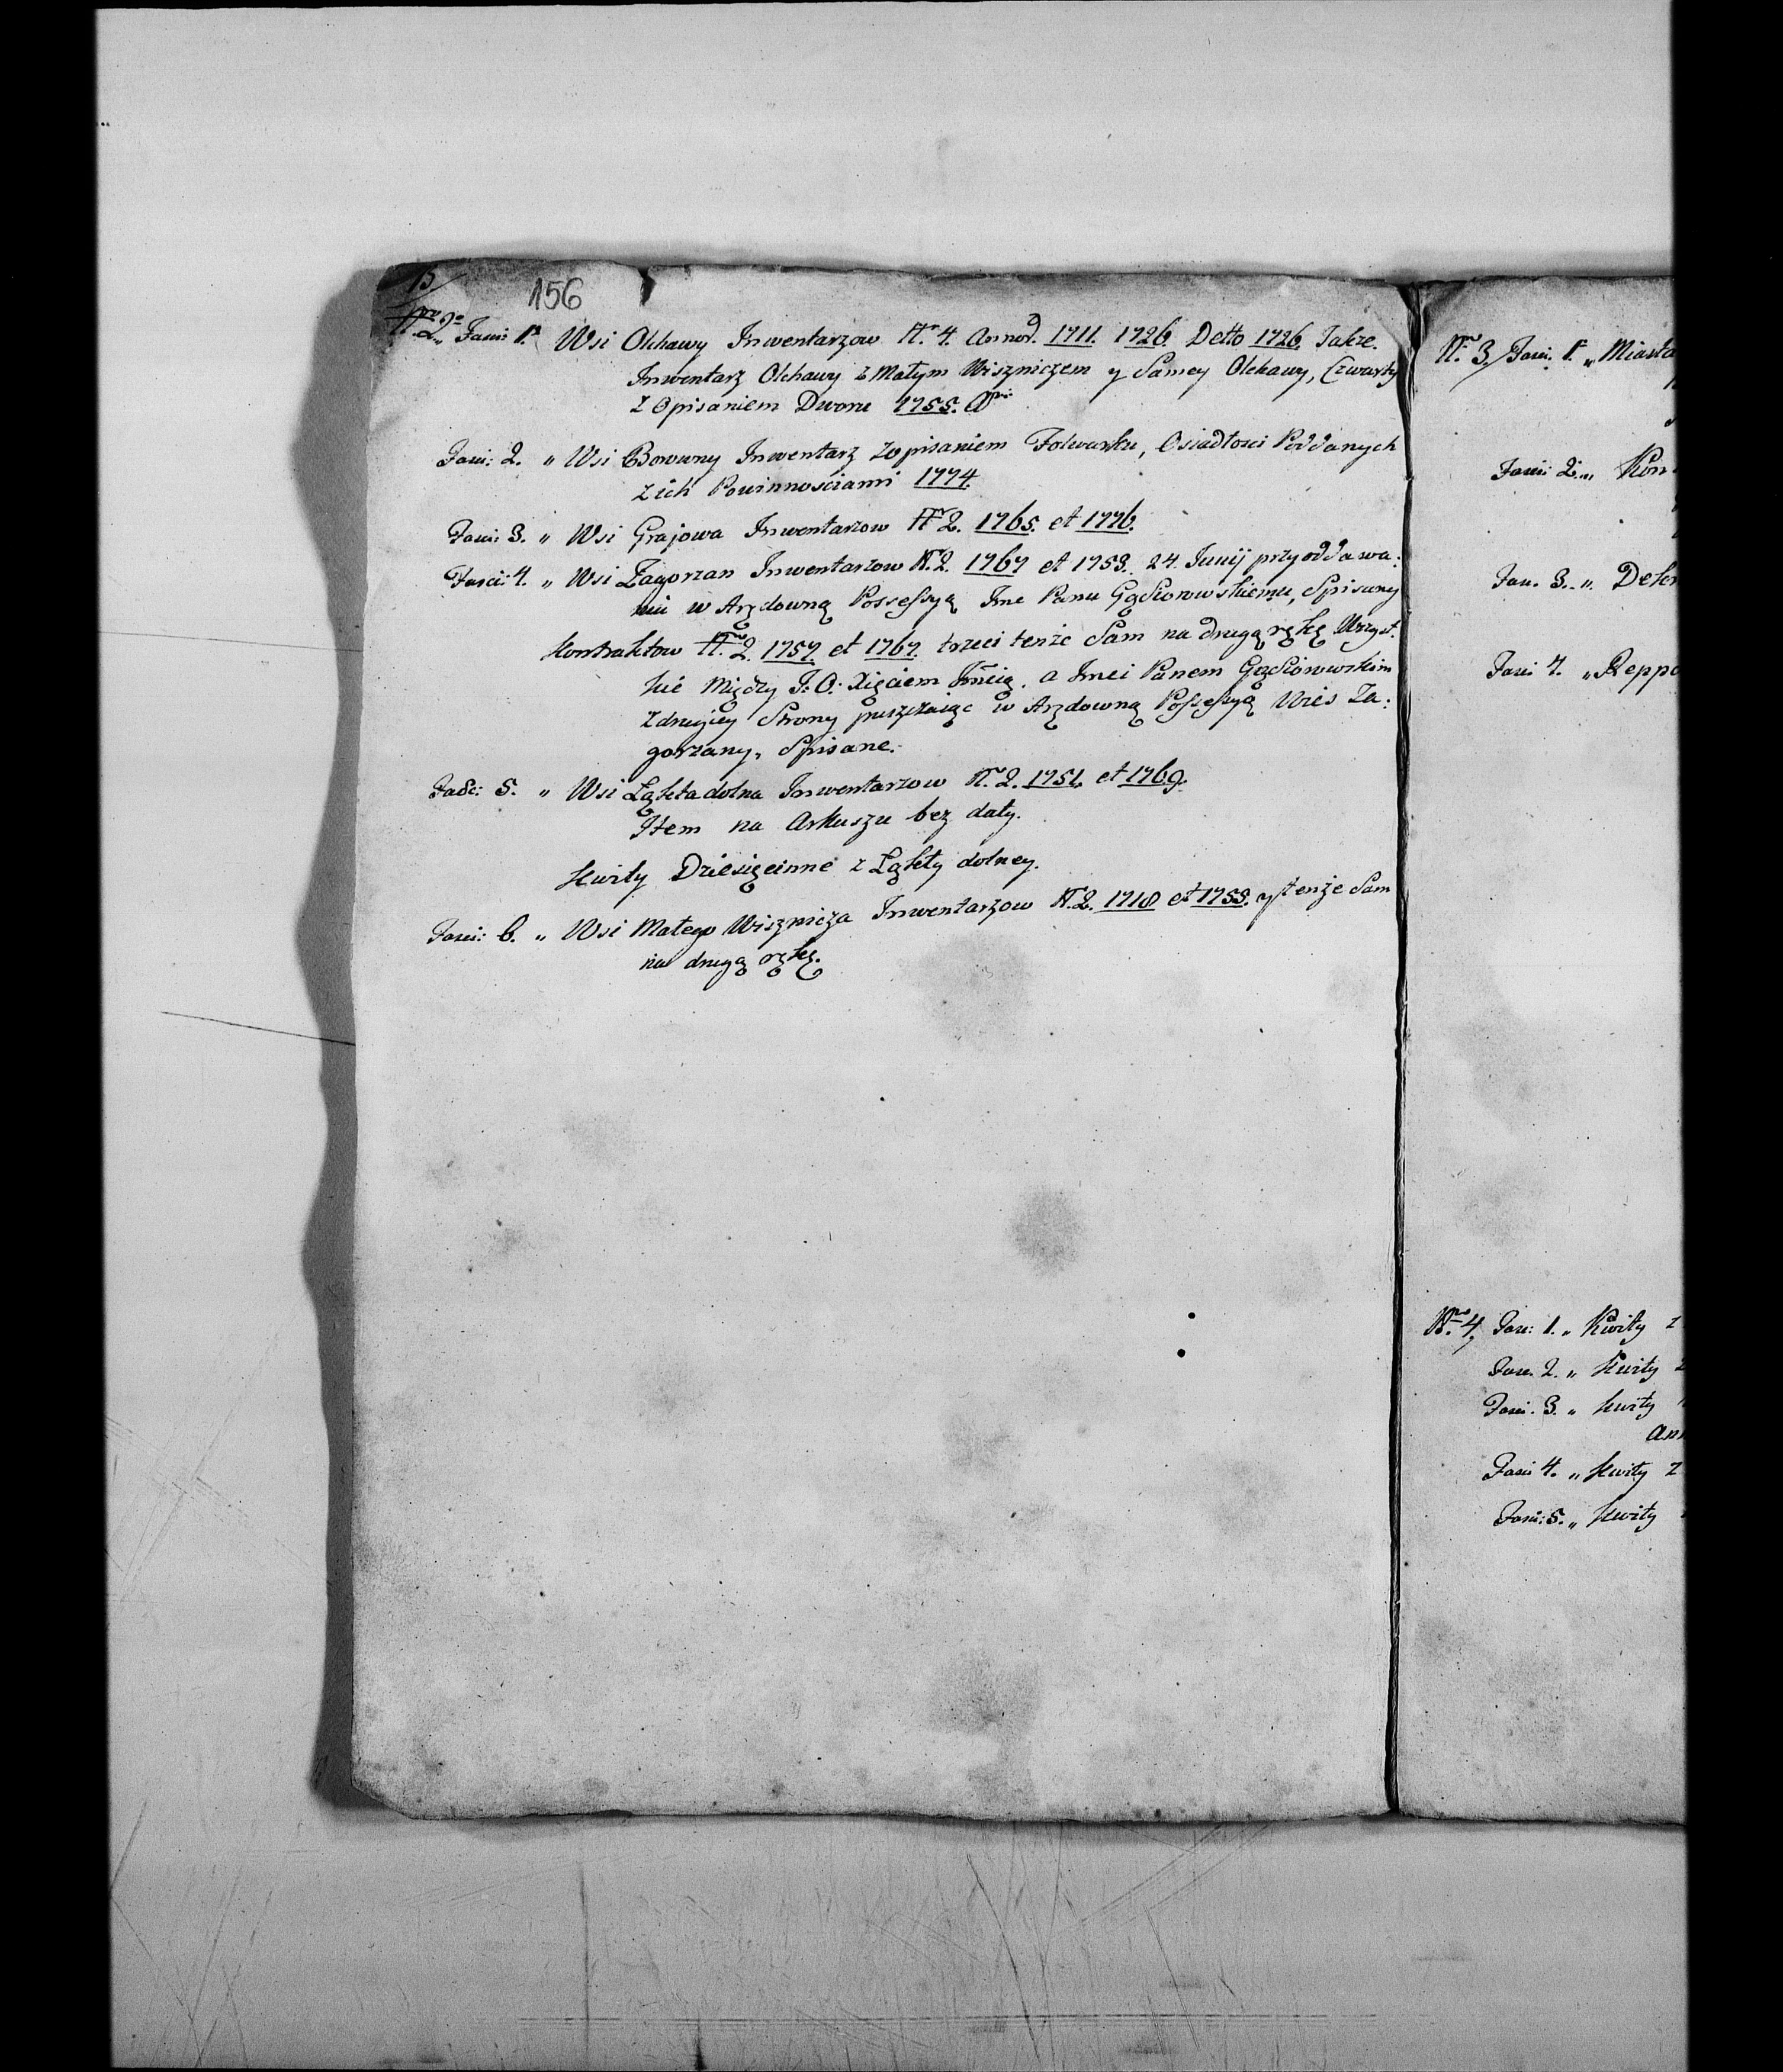 15
156
Nro 2do Fasci: 1. Wsi Olchawy Inwentarzow N. 4. Annor. 1711. 1726. Detto 1726. Takze.
Inwentarz Olchawy z Małym Wiszniczem y Samey Olchawy, Czwarty
z Opisaniem Dworu 1755. Ani
Fasci: 2. „ Wsi Borowny Inwentarz z opisaniem Folwarku, Osiadłosci Poddanych
z ich Powinnosciami 1774.
Fasci: 3. „ Wsi Grajowa Inwentarzow Nr 2. 1765. et 1776.
Fasci: 4. „ Wsi Zagorzan Inwentarzow N. 2. 1767 et 1753. 24. Junij przy oddawa:
niu w Arędowną Possessyą Jme Panu Gąsiorowskiemu, Spisany
Kontraktow Nro 2. 1757. et 1767. trzeci tenże Sam na drugą rękę Wszyst:
kie Między J: O: Xięciem Jmcią, a Jmci Panem Gąsiorowskim
z drugiey Strony puszczaiąc w Arędowną Possessyą Wieś Za:
gorzany, Spisane.
Fasc: 5. „ Wsi Łąkta dolna Inwentarzow N. 2. 1751. et 1769.
Item na Arkuszu bez daty.
Kwity Dziesięcinne z Łąkty dolney.
Fasci: 6. „ Wsi Małego Wisznicza Inwentarzow N. 2. 1718 et 1753. y tenże Sam
na drugą rękę.
Nro 3. Fasci. 1. „ Miasta
Fasci: 2. „ Kon
Fasc. 3. „ Deser
Fasci 4. „ Reppa
Nro 4. Fasc: 1. „ Kwity z
Fasc. 2. „ Kwity z
Fasci. 3. „ Kwity
Ann
Fasci 4. „ Kwity z
Fasci: 5. „ Kwity